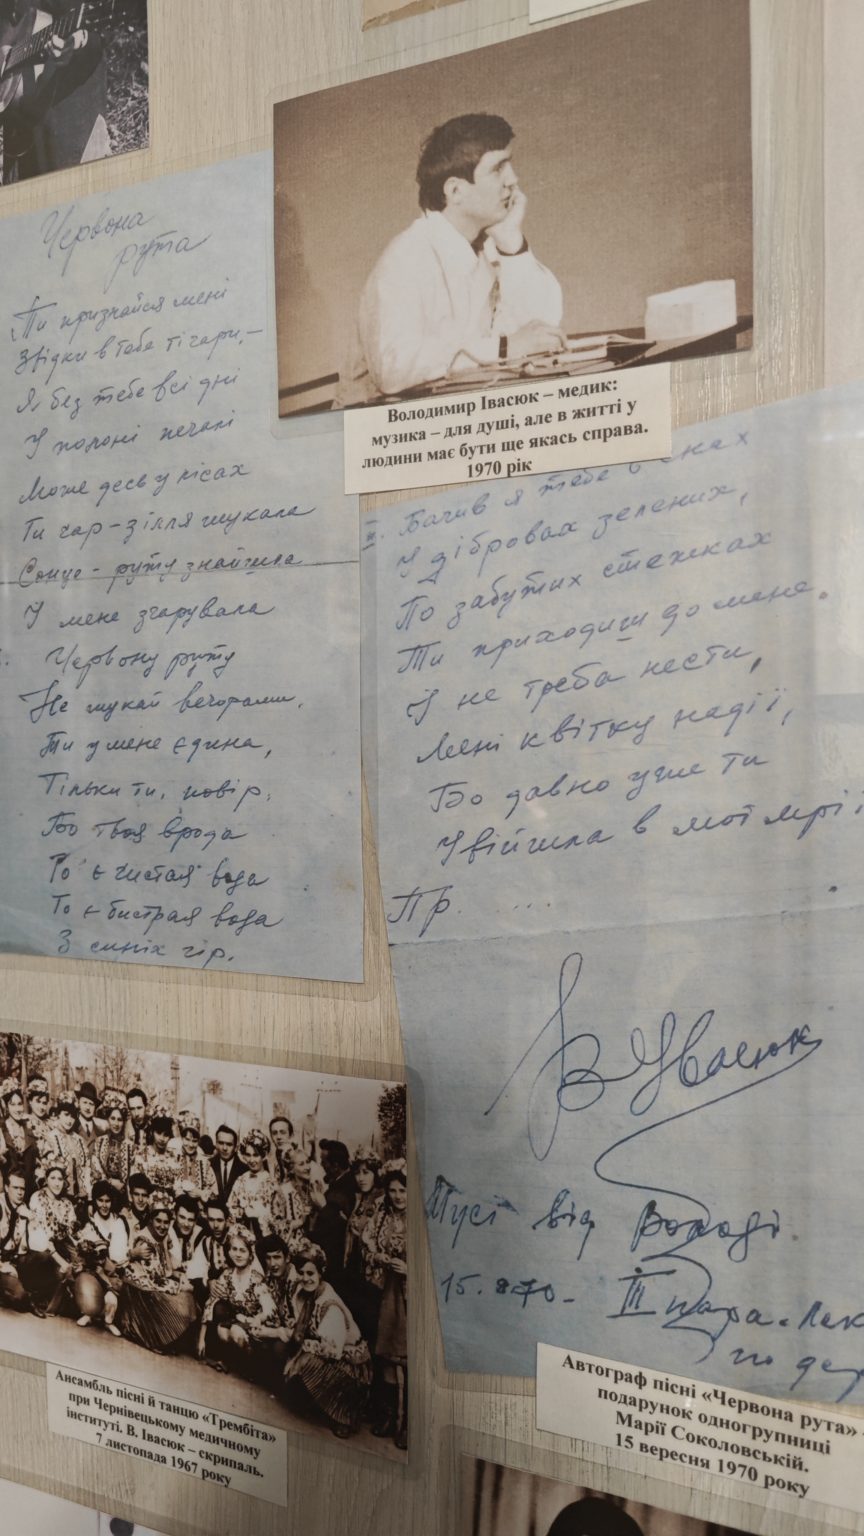 Червона
рута
Ти признайся мені
Звідки в тебе ті чари,–
Я без тебе всі дні
У полоні печалі
Може десь у лісах
Ти чар-зілля шукала
Сонце-руту знайшла
І мене зчарувала
Червону руту
Не шукай вечорами,
Ти у мене єдина,
Тільки ти, повір,
Бо твоя врода
То є чистая вода
То є бистрая вода
З синіх гір.
Володимир Івасюк – медик:
музика – для душі, але в житті у
людини має бути ще якась справа.
1970 рік
ІІ. Бачив я тебе в снах
У дібровах зелених,
По забутих стежках
Ти приходиш до мене.
І не треба нести,
Мені квітку надії,
Бо давно уже ти
Увійшла в мої мрії
Пр. ....
В Івасюк
Мусі від Володі
15. 70 – ІІІ пара. Лек
по
Ансамбль пісні й танцю «Трембіта»
при Чернівецькому медичному
інституті. В. Івасюк – скрипаль.
7 листопада 1967 року
Автограф пісні «Червона рута» -
подарунок одногрупниці
Марії Соколовській.
15 вересня 1970 року